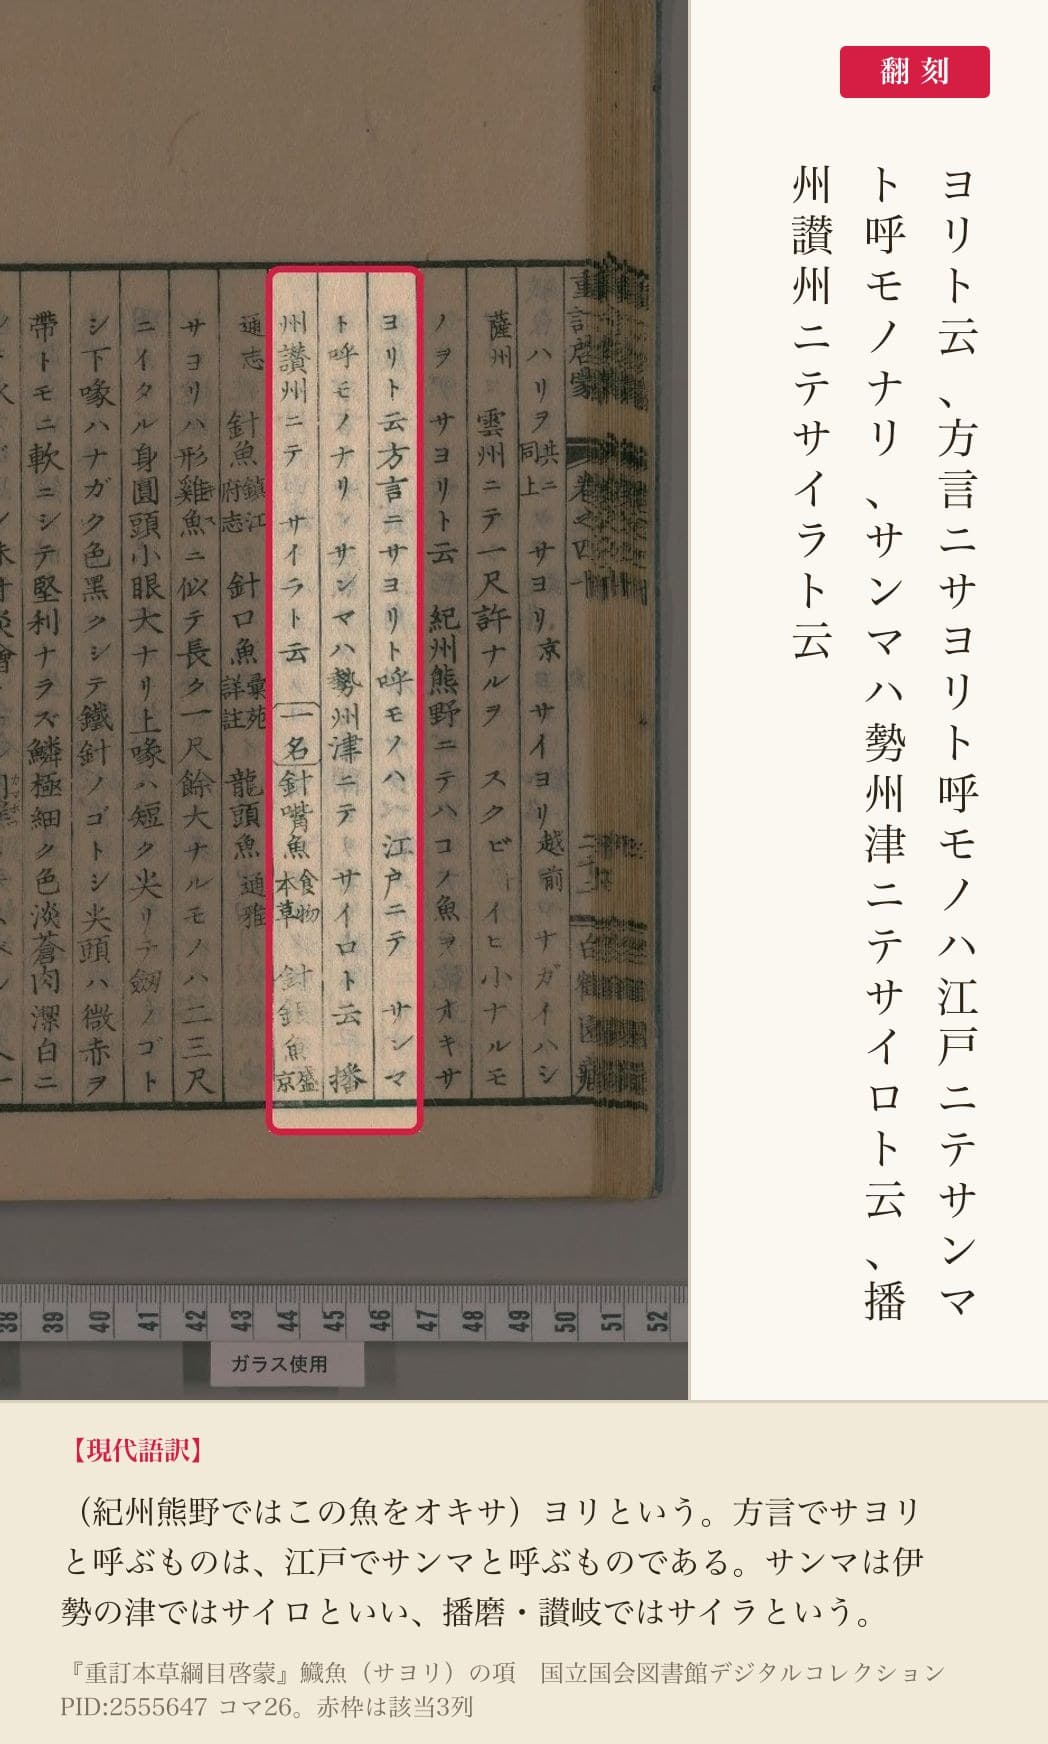 翻刻
ヨリト云、方言ニサヨリト呼モノハ江戸ニテサンマ
ト呼モノナリ、サンマハ勢州津ニテサイロト云、播
州讃州ニテサイラト云
薩州 雲州ニテ一尺許ナルヲ スクビ イヒ小ナルモ
ノヲ サヨリト云 紀州熊野ニテハコノ魚ヲオキサ
ヨリト云方言ニサヨリト呼モノハ 江戸ニテ サンマ
ト呼モノナリ サンマハ勢州津ニテ サイロト云 播
州讃州ニテ サイラト云 一名 針嘴魚 食物本草 針
魚
通志 針魚 鎮江府志 針口魚 彙苑詳註 龍頭魚 通雅
サヨリハ形雞魚ニ似テ長ク一尺餘大ナルモノハ二三尺
ニイタル身圓頭小眼大ナリ上喙ハ短ク尖リテ劔ノゴト
シ下喙ハナガク色黒クシテ鐵針ノゴトシ尖頭ハ微赤ヲ
帶トモニ軟ニシテ堅利ナラズ鱗極細ク色淡蒼肉潔白ニ
38 39 40 41 42 43 44 45 46 47 48 49 50 51 52
ガラス使用
【現代語訳】
（紀州熊野ではこの魚をオキサ）ヨリという。方言でサヨリ
と呼ぶものは、江戸でサンマと呼ぶものである。サンマは伊
勢の津ではサイロといい、播磨・讃岐ではサイラという。
『重訂本草綱目啓蒙』鱵魚（サヨリ）の項　国立国会図書館デジタルコレクション
PID:2555647 コマ26。赤枠は該当3列